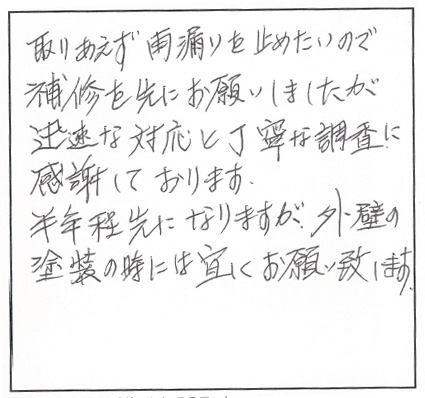 取りあえず雨漏りを止めたいので
補修を先にお願いしましたが
迅速な対応と丁寧な調査に
感謝しております.
半年程先になりますが、外壁の
塗装の時には宜しくお願い致します.